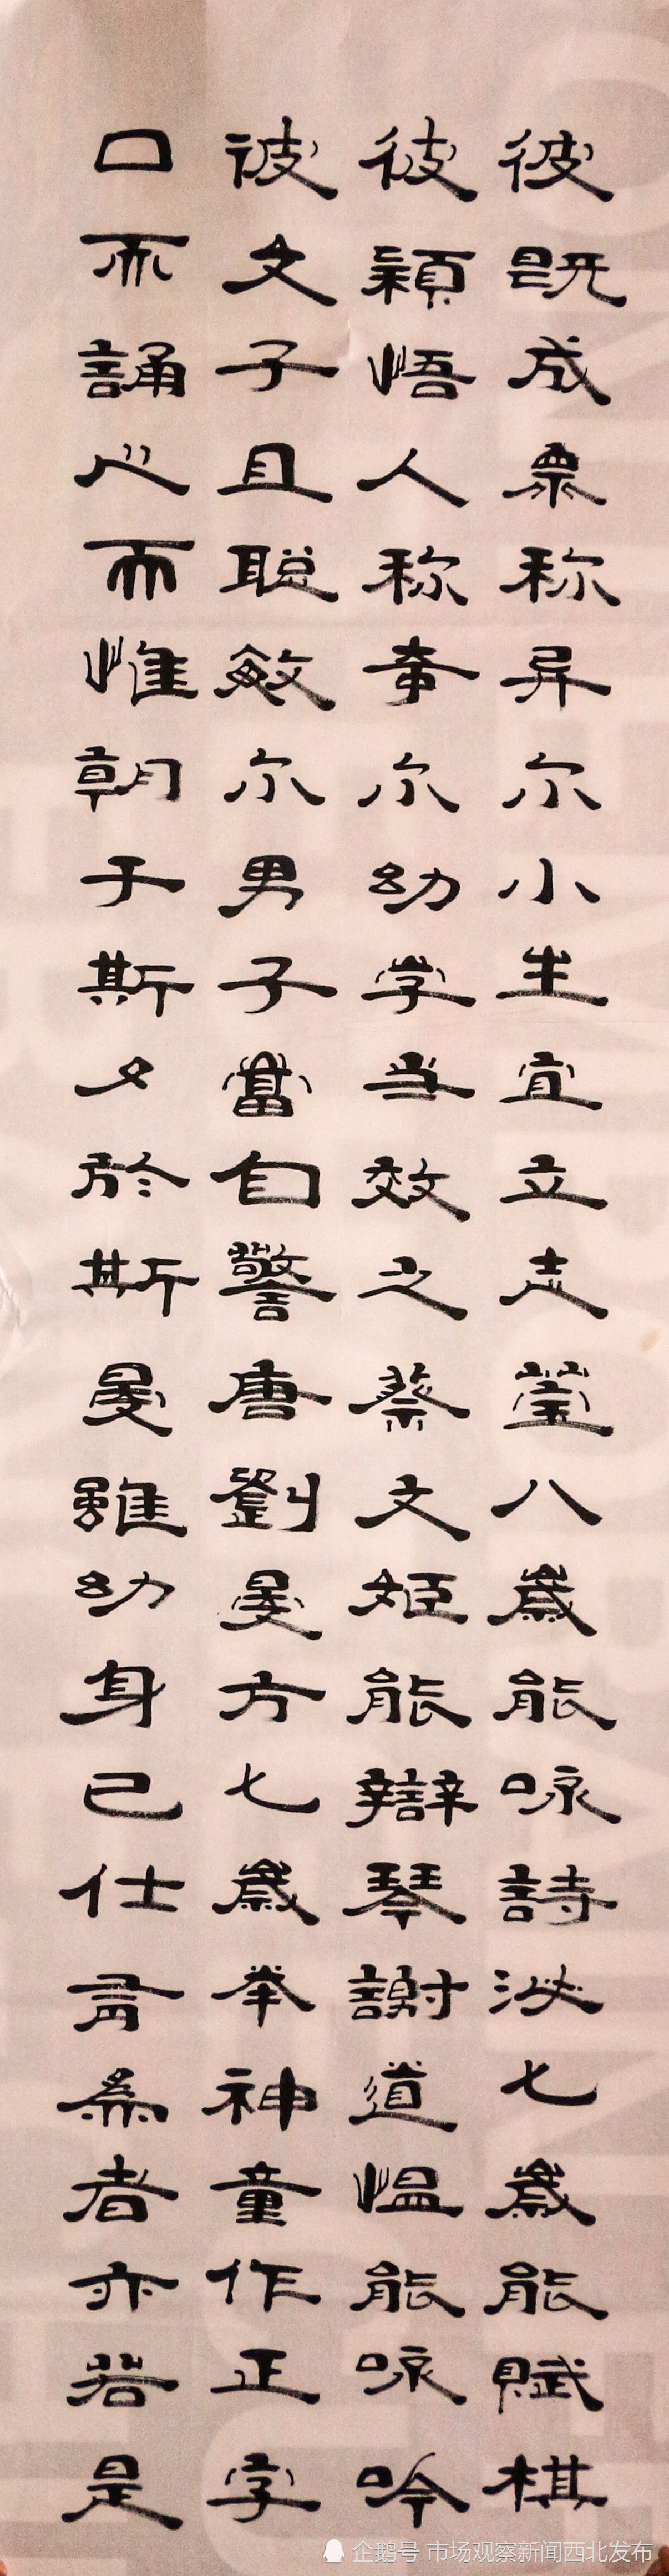 彼既成票称异尔小生宜立志莹八歳能咏詩泌七歳能賦棋
彼穎悟人称奇尔幼学当效之蔡文姬能辯琴謝道愠能咏吟
彼文子且聪敏尔男子當自警唐劉晏方七歳举神童作正字
口而誦心而惟朝于斯夕於斯晏雖幼身已仕有為者亦若是
企鹅号 市场观察新闻西北发布